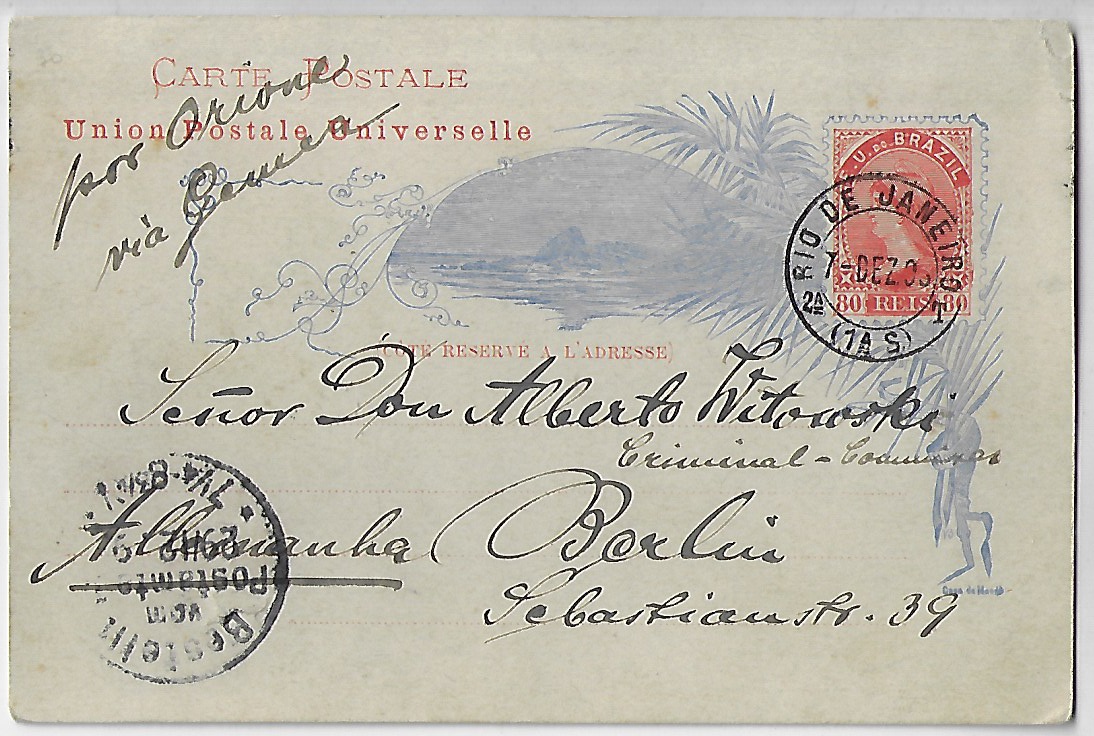 CARTE POSTALE
Union Postale Universelle
por Orione
via Genova
E. U. DO BRAZIL
80 REIS 80
RIO DE JANEIRO
7-DEZ
2A T
(1A S)
(CÔTÉ RESERVÉ A L'ADRESSE)
Señor Don Alberto Witowski
Criminal-
Allemanha Berlin
Sebastianstr. 39
Bestellt
vom
Postamte
29 12
Casa da Moeda